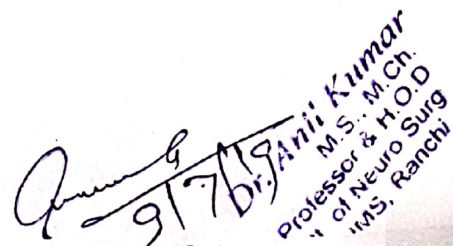 9/7/19
Dr. Anil Kumar
M.S., M.Ch.
Professor & H.O.D
of Neuro Surg
IMS, Ranchi